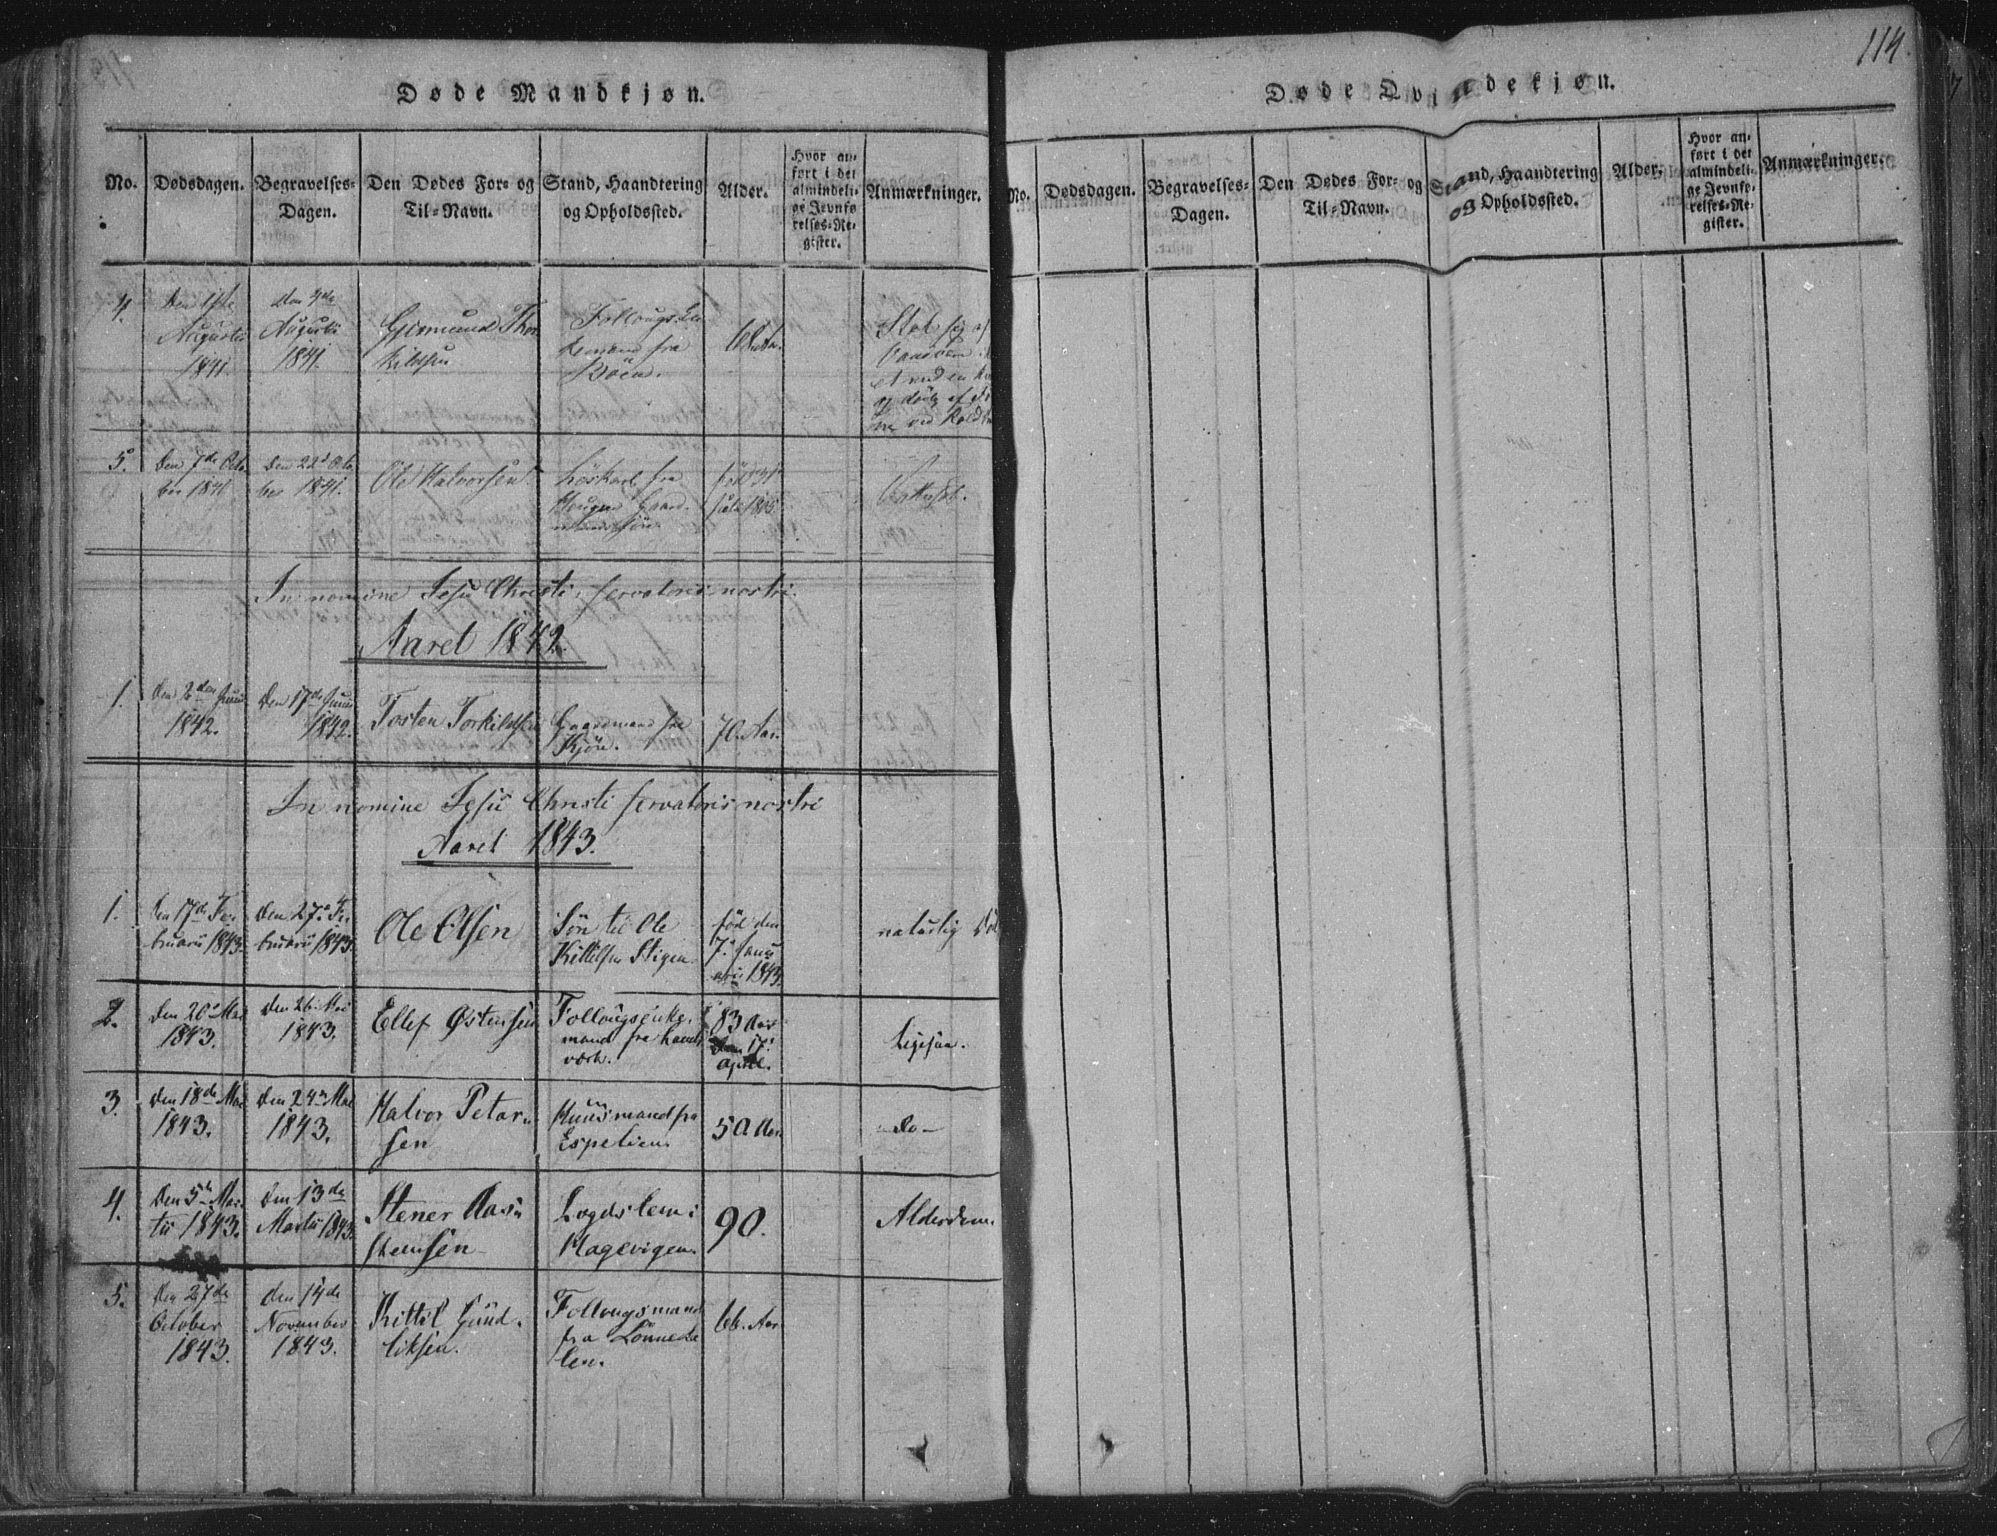 114.
Døde Mandkjøn.
No. Dødsdagen. Begravelses-Dagen. Den Dødes For- og Til-Navn. Stand, Haandtering og Opholdssted. Alder. Hvor anført i det almindelige Jevnførelses-Register. Anmærkninger.
4.
Den 1ste
Augusti
1841.
Den 7de
Augusti
1841.
Germund Thor
kildsen
fra
Böen.
Aar.
Stak sig af
5.
Den 7de Octo
ber 1841
Den 22d Octo
ber 1841.
Ole Halvorsen
Löskarl fra
Haugen Gaard
mandssön
föd 31
Julii
In nomine Jesu Christi, servatoris nostri.
Aaret 1842.
1.
Den 2den Junii
1842.
Den 17de Junii
1842.
Tosten Torkildsen
Gaardmand fra
Kjön.
70. Aar.
In nomine Jesu Christi servatoris nostri
Aaret 1843.
1.
Den 17de Fe
bruarii 1843.
Den 27de Fe
bruarii 1843.
Ole Olsen
Sön til Ole
Kittelsen Stigen
föd den
7de Janu
arii 1843.
naturlig Död
2.
Den 20de Mai
1843.
Den 26. Mai
1843.
Ellef Østensen
Follougsenke-
mand fra
værk.
83 Aar
den 17de
April.
Ligesaa.
3.
Den 18de Mai
1843.
Den 24de Mai
1843.
Halvor Petar
sen
Huusmand fra
Espelien
50 Aar
do
4.
Den 5de Mar
tii 1843.
Den 13de
Martii 1843.
Stener Aase
steinsen
Lægdslem i
Hagevigen
90.
Alderdom
5.
Den 27de
October
1843.
den 14de
November
1843.
Kittil Gund
leiksen.
Follougsmand
fra Lönnede
len.
66. Aar.
Døde Qvindekjøn.
No. Dødsdagen. Begravelses-Dagen. Den Dødes For- og Til-Navn. Stand, Haandtering og Opholdssted. Alder. Hvor anført i det almindelige Jevnførelses-Register. Anmærkninger.